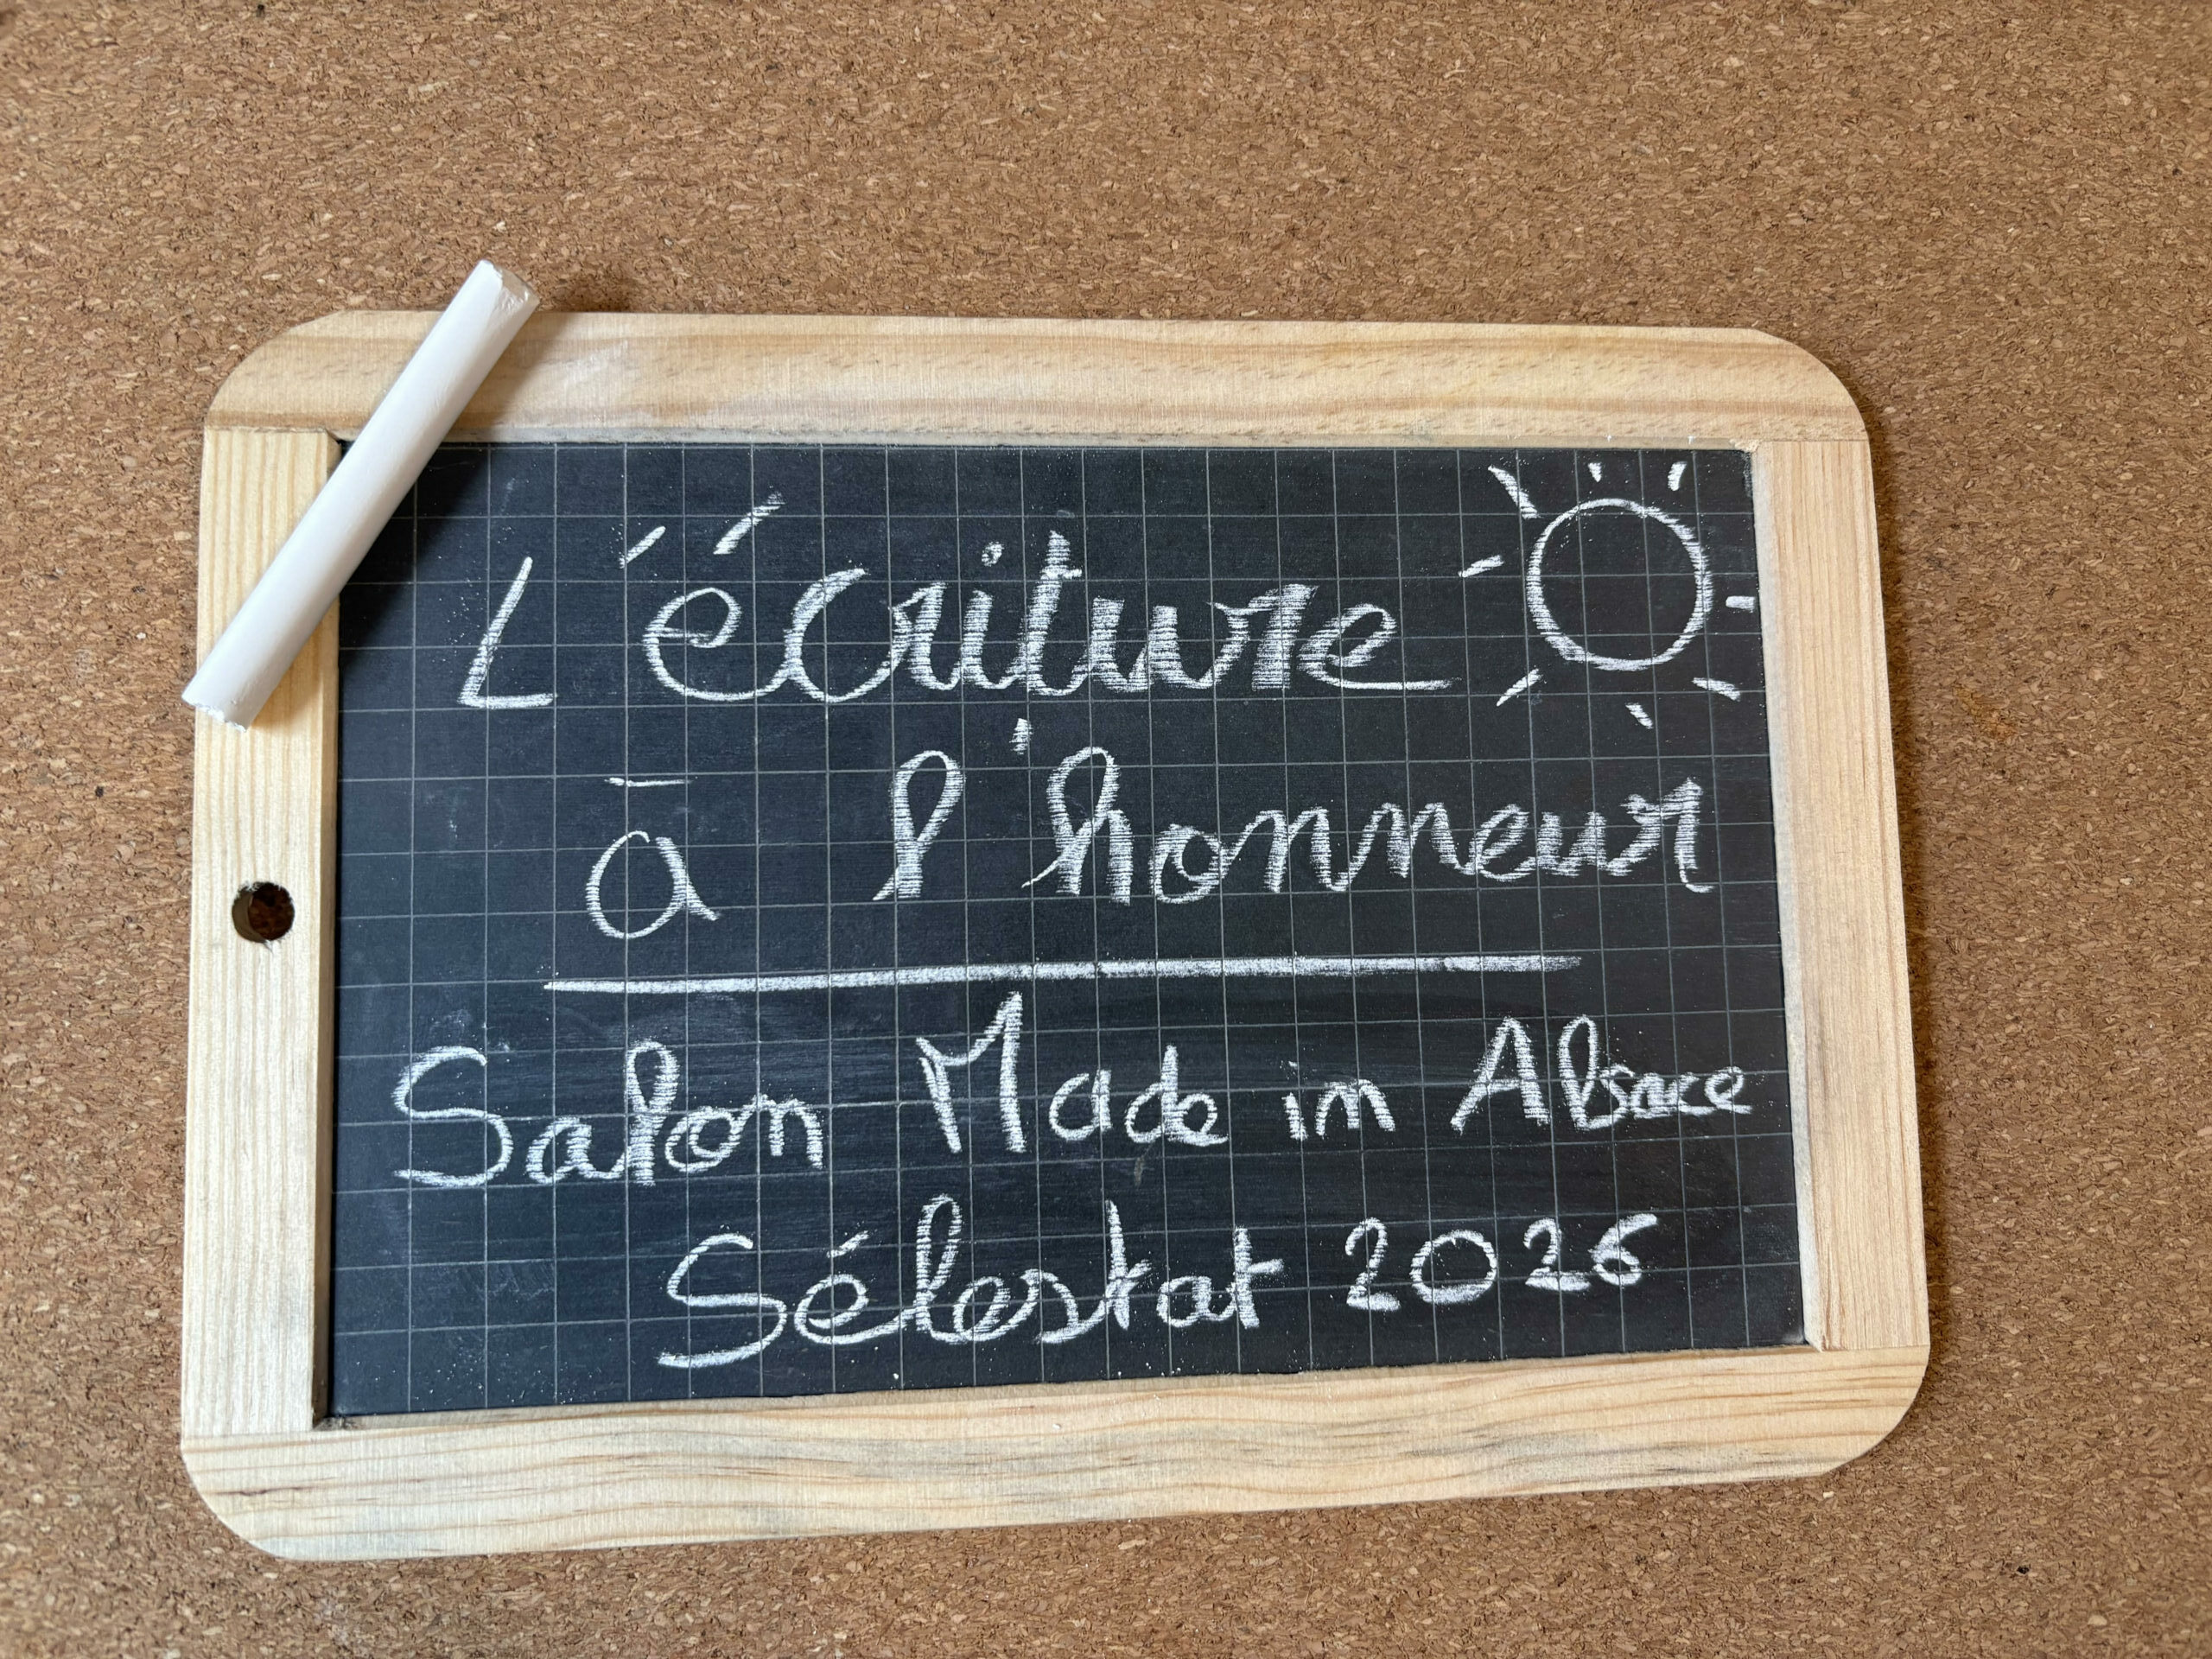 L'écriture
à l'honneur
Salon Made in Alsace
Sélestat 2026